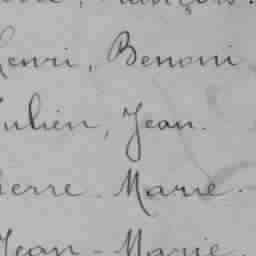 Henri, Benoni
Julien, Jean.
Pierre - Marie.
Jean - Marie.